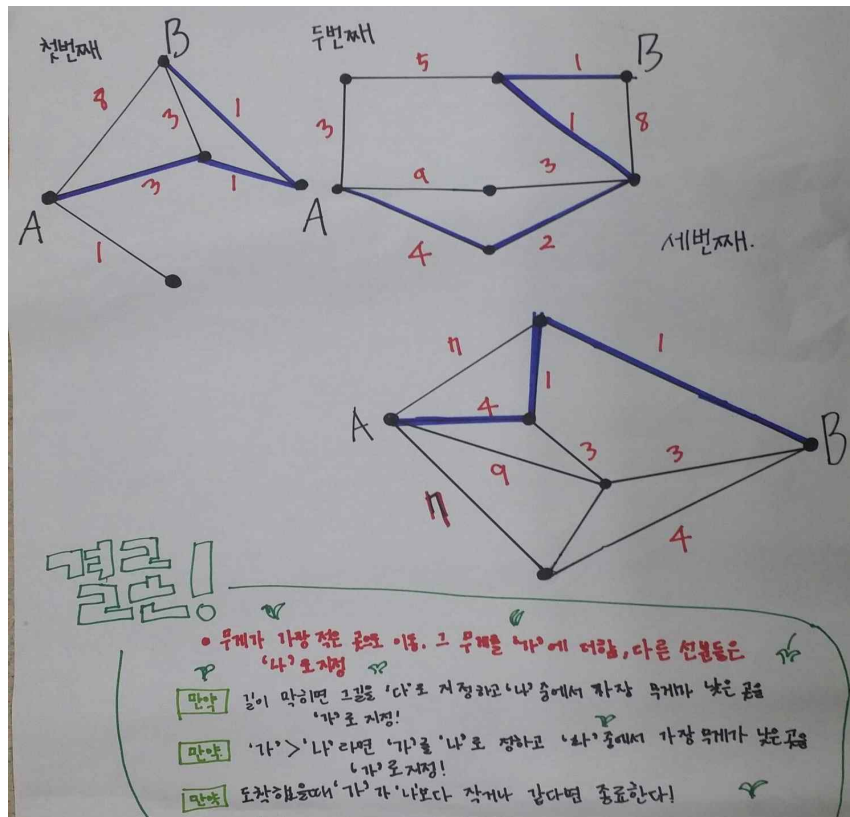 첫번째
B
8
3
1
3
1
A
1
두번째
5
1
B
3
1
8
9
3
A
4
2
세번째.
7
1
1
A
4
3
3
B
9
7
4
결론!
• 무게가 가장 적은 곳으로 이동. 그 무게를 '가'에 더함, 다른 선분들은
'나'로 지정
만약 길이 막히면 그길을 '다'로 지정하고 '나' 중에서 가장 무게가 낮은 곳을
'가'로 지정!
만약 '가' > '나' 라면 '가'를 '나'로 정하고 중에서 가장 무게가 낮은 곳을
'가'로 지정!
만약 도착했을때 '가'가 '나'보다 작거나 같다면 종료한다!